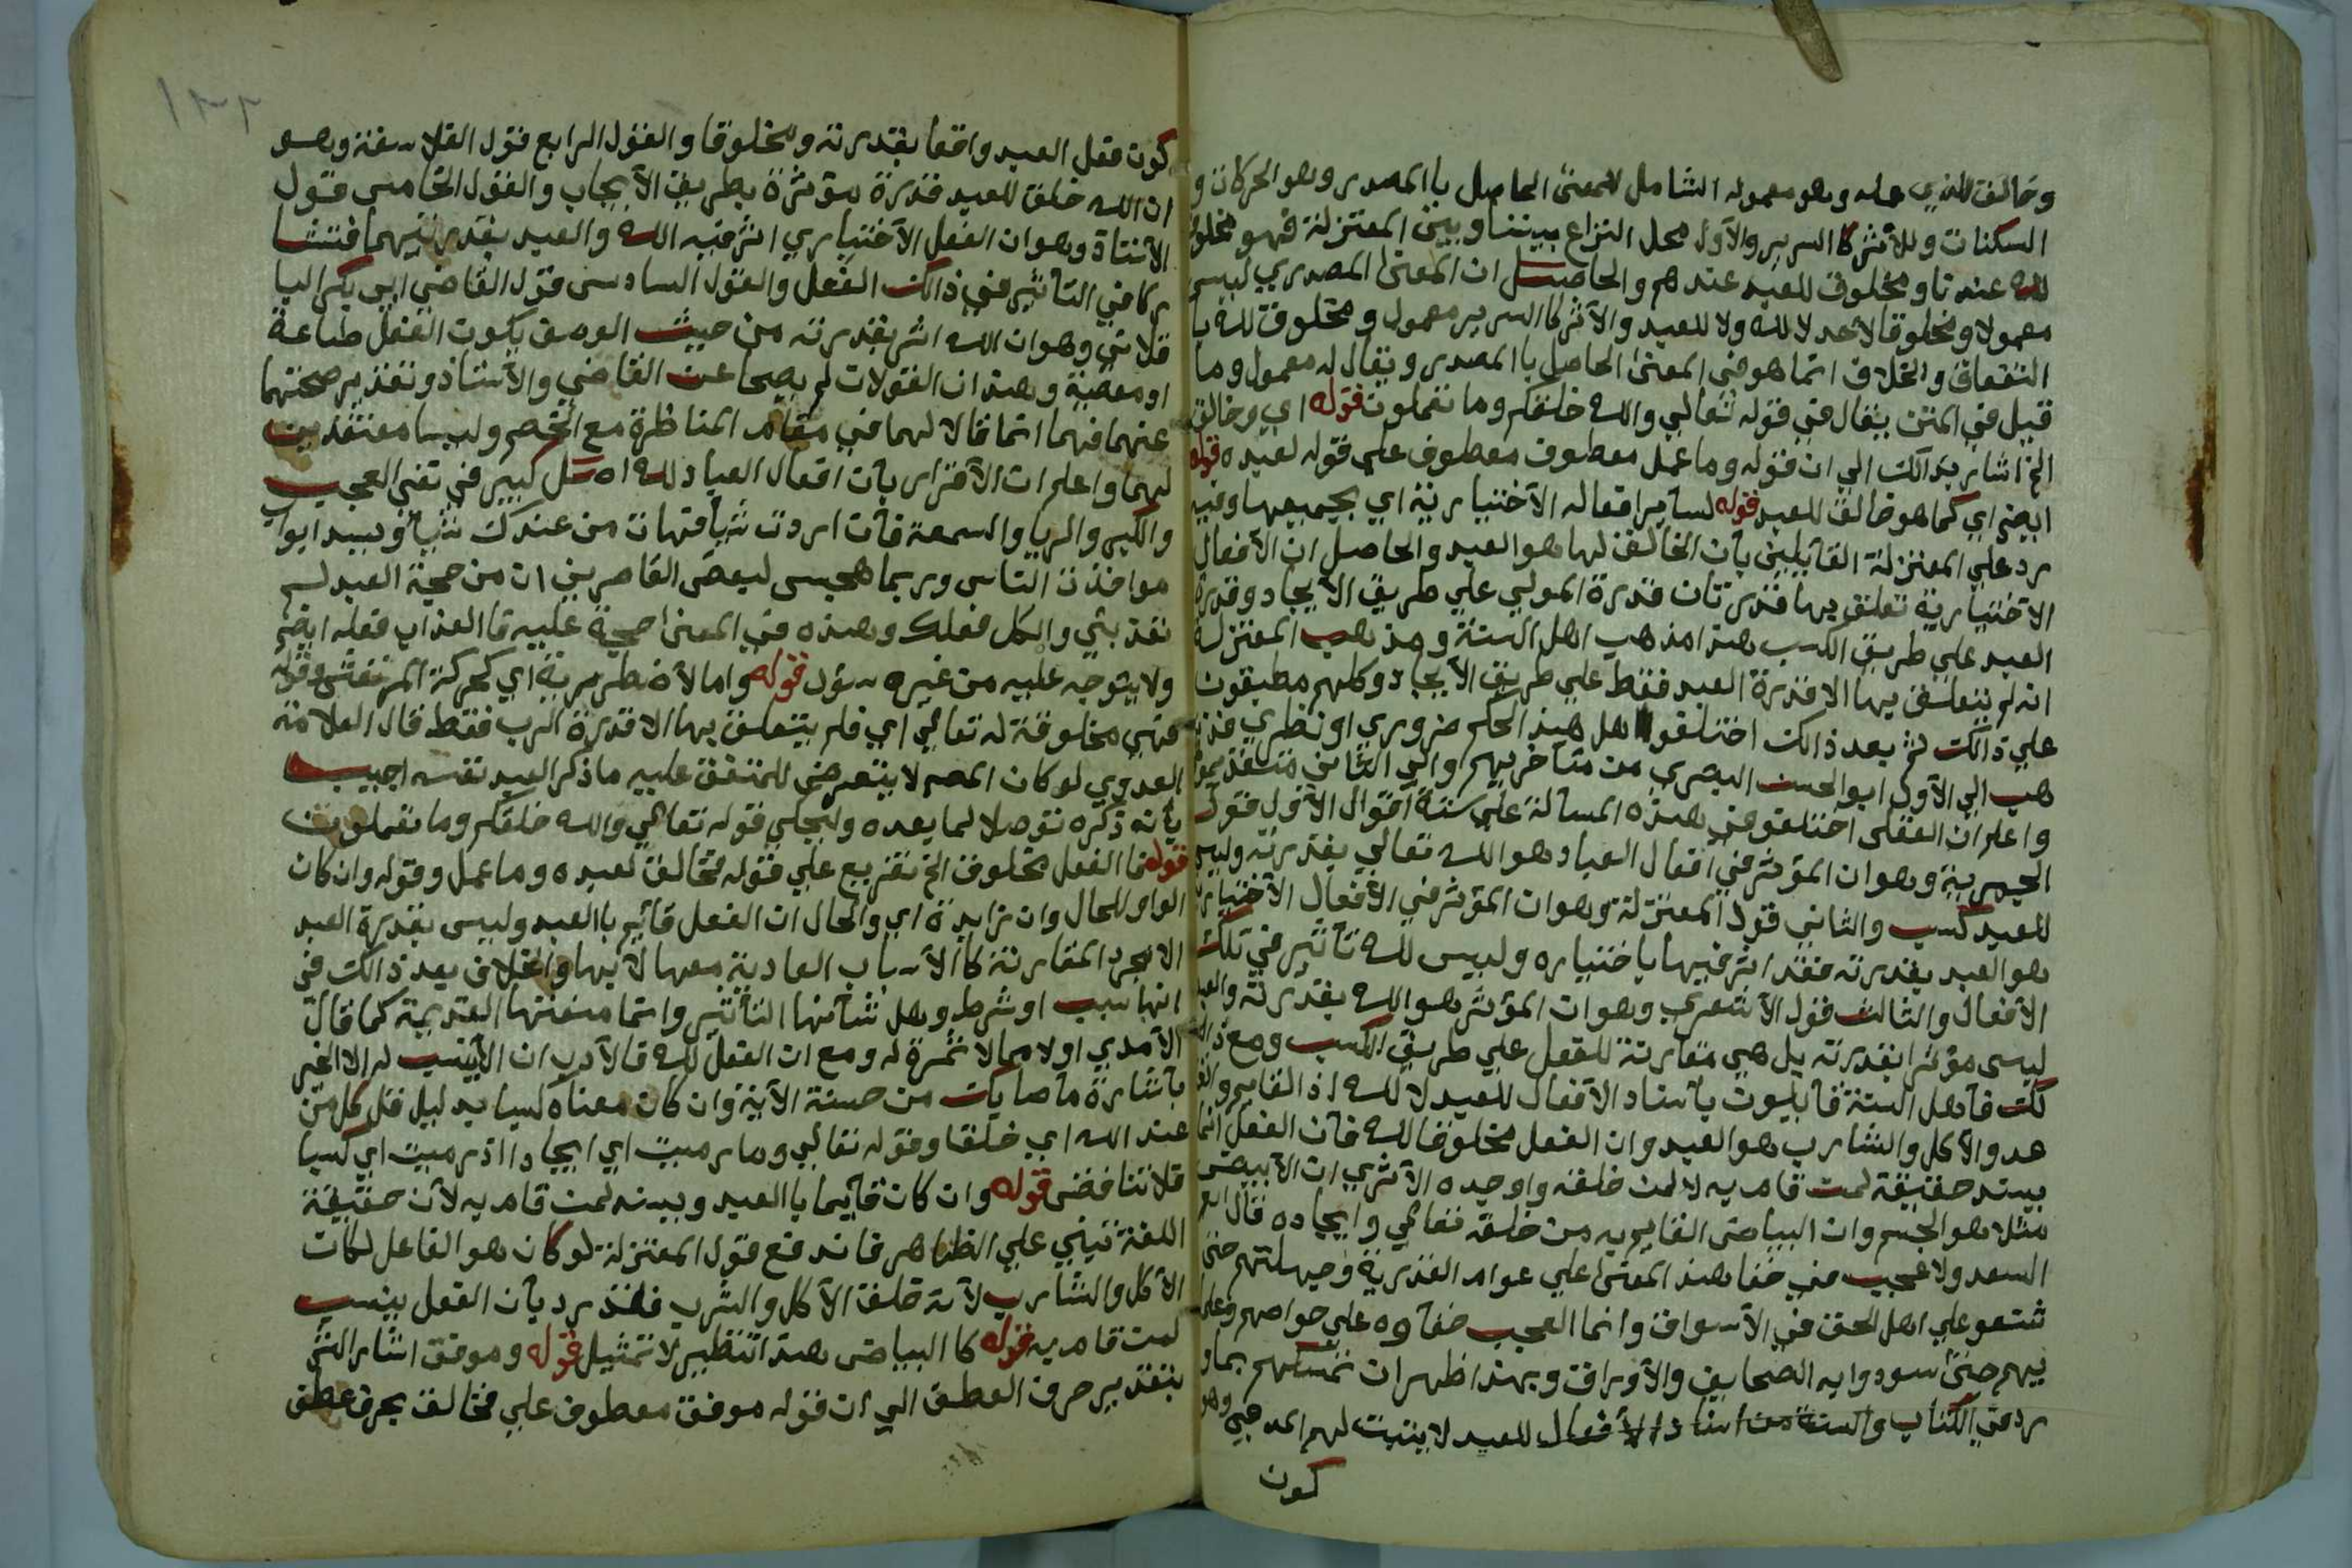 وخالق للذي عمله وهو معموله الشامل للمعنى الحاصل باالمصدر وهو الحركات و
السكنات وللأثر كاالسرير والأول محل النزاع بيننا وبين المعتزلة فهو مخلوق
لله عندنا ومخلوق للعبد عندهم والحاصل ان المعنى المصدري ليس
معمولا ومخلوقا لاحد لا لله ولا للعبد والأثر كاالسرير معمول ومخلوق لله با
التفعاق والخلاف انما هو في المعنى الحاصل باالمصدر ويقال له معمول وما
قيل في المتن يقال في قوله تعالي والله خلقكم وما تعملون قوله اي وخالق
الخ اشار بذالك الي ان قوله وما عمل معطوف معطوف علي قوله لعبده قوله
ايضم اي كما هو خالق للعبد قوله لساير افعاله الأختيارية اي بجميعها وفيه
رد علي المعتزلة القايلين بأن الخالق لها هو العبد والحاصل ان الأفعال
الأختيارية تعلق بها قدرتان قدرة المولي علي طريق الأيجاد وقدرة
العبد علي طريق الكسب هذا مذهب اهل السنة ومذهب المعتزلة
انه لم يتعلق بها الا قدرة العبد فقط علي طريق الأيجاد وكلهم مطبقون
علي ذالك ثم بعد ذالك اختلفوا هل هذا الحكم ضروري او نظري فذ
هب الي الأول ابو الحسن البصري من متأخريهم والي الثاني متقدموا
واعلم ان العقلى اختلفو في هذه المسالة علي ستة اقوال الأول قول
الجبرية وهو ان المؤثر في افعال العباد هو الله تعالي بقدرته وليس
للعبد كسب والثاني قول المعتزلة وهو ان المؤثر في الأفعال الأختيارية
هو العبد بقدرته فقد اثر فيها باختياره وليس لله تأثير في تلك
الأفعال والثالث قول الأشعري وهو ان المؤثر هو الله بقدرته والعبد
ليس مؤثرا بقدرته بل هي مقارنة للفعل علي طريق الكسب ومع ذا
لك فأهل السنة قايلون بأسناد الأفعال للعبد لا لله اذ القايم والقا
عد والآكل والشارب هو العبد وان الفعل مخلوقا لله فان الفعل انما
يسند حقيقة لمن قام به لا لمن خلقه واوجده الأ تري ان الأبيض
مثلا هو الجسم وان البياض القايم به من خلقه تعالي وايجاده قال
السعد ولا عجب في خفا هذا المعنى علي عوام القدرية وجهلتهم حتى
شنعو علي اهل الحق في الأسواق وانما العجب خفاوه علي خواصهم وعلما
يهم حتى سودوا به الصحايف والأوراق وبهذا ظهر ان تمسكهم بما و
رد في الكتاب والسنة من اسناد الأفعال للعبد لا يثبت لهم المدعي وهو
كون
كون فعل العبد واقعا بقدرته ومخلوقا والقول الرابع قول الفلاسفة وهو
ان الله خلق للعبد قدرة مؤثرة بطريق الأيجاب والقول الخامس قول
الأستاذ وهو ان الفعل الأختياري اثر فيه الله والعبد بقدرتيهما فتشا
ركا في التأثير في ذالك الفعل والقول السادس قول القاضي ابي بكر البا
قلاني وهو ان الله اثر بقدرته من حيث الوصف بكون الفعل طاعة
او معصية وهذا ان القولان لم يصحا عن القاضي والأستاذ وتقدير صحتهما
عنهما فهما انما قالا لهما في مقام المناظرة مع الخصم وليسا معتقدين
لهما واعلم ان الأقرار بأن افعال العباد لله اصل كبير في نفي العجب
والكبر والريا والسمعة فان اردت شيأ فهات من عندك شيأ ويسد ابواب
مواخذت الناس وربما هجس لبعض القاصرين ان من حجة العبد لم
تعذبني والكل فعلك وهذه في المعنى حجة عليه فا العذاب فعله ايضم
ولا يتوجه عليه من غيره سؤل قوله واما الأضطررية اي كحركة المرتعش وقوله
فهي مخلوقة له تعالي اي فلم يتعلق بها الا قدرة الرب فقط قال العلامة
العدوي لو كان المصم لا يتعرض للمتفق عليه ما ذكر العبد نفسه اجيب
بأنه ذكره توصلا لما بعده وليحكي قوله تعالي والله خلقكم وما تعملون
قوله فا الفعل مخلوق الخ تفريع علي قوله فخالق لعبده وما عمل وقوله وان كان
الواو للحال وان زايدة اي والحال ان الفعل قايم باالعبد وليس بقدرة العبد
الا مجرد المقارنة كاالأسباب العادية معها لا بها والخلاف بعد ذالك في
انها سبب او شرط وهل شأنها التأثير وانما منعتها القديمة كما قال
الأمدي اولا مما لا ثمرة له ومع ان الفعل لله فالأدب ان لاينسب له الا الخير
بأشارة ما صابك من حسنة الأية وان كان معناه كسبا بدليل قل كل من
عند الله اي خلقا وقوله تعالي وما رميت اي ايجادا اذ رميت اي كسبا
فلا تناقض قوله وان كان قأيما باالعبد ويسند لمن قام به لأن حقيقة
اللغة تبني علي الظاهر فاندفع قول المعتزلة لو كان هو الفاعل لكان
الأكل والشارب لأنه خلق الأكل والشرب فلقد رد بأن الفعل ينسب
لمن قام به قوله كا البياض هذا تنظير لا تمثيل قوله وموفق اشار الش
بتقدير حرف العطف الي ان قوله موفق معطوف علي فخالق بحرف عطف